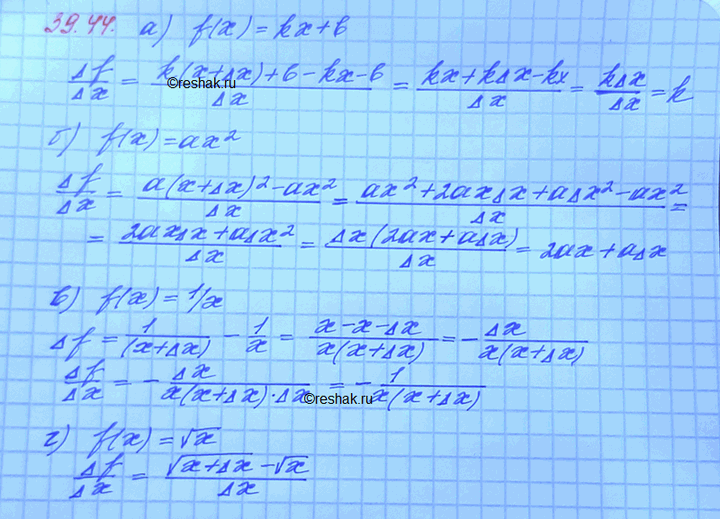 39.44. а) f(x) = kx + b
Δf/Δx = (k(x+Δx)+b−kx−b)/Δx = (kx+kΔx−kx)/Δx = kΔx/Δx = k
©reshak.ru
б) f(x) = ax²
Δf/Δx = (a(x+Δx)²−ax²)/Δx = (ax²+2axΔx+aΔx²−ax²)/Δx =
= (2axΔx+aΔx²)/Δx = Δx(2ax+aΔx)/Δx = 2ax+aΔx
в) f(x) = 1/x
Δf = 1/(x+Δx) − 1/x = (x−x−Δx)/(x(x+Δx)) = −Δx/(x(x+Δx))
Δf/Δx = −Δx/(x(x+Δx)·Δx) = −1/(x(x+Δx))
©reshak.ru
г) f(x) = √x
Δf/Δx = (√(x+Δx)−√x)/Δx